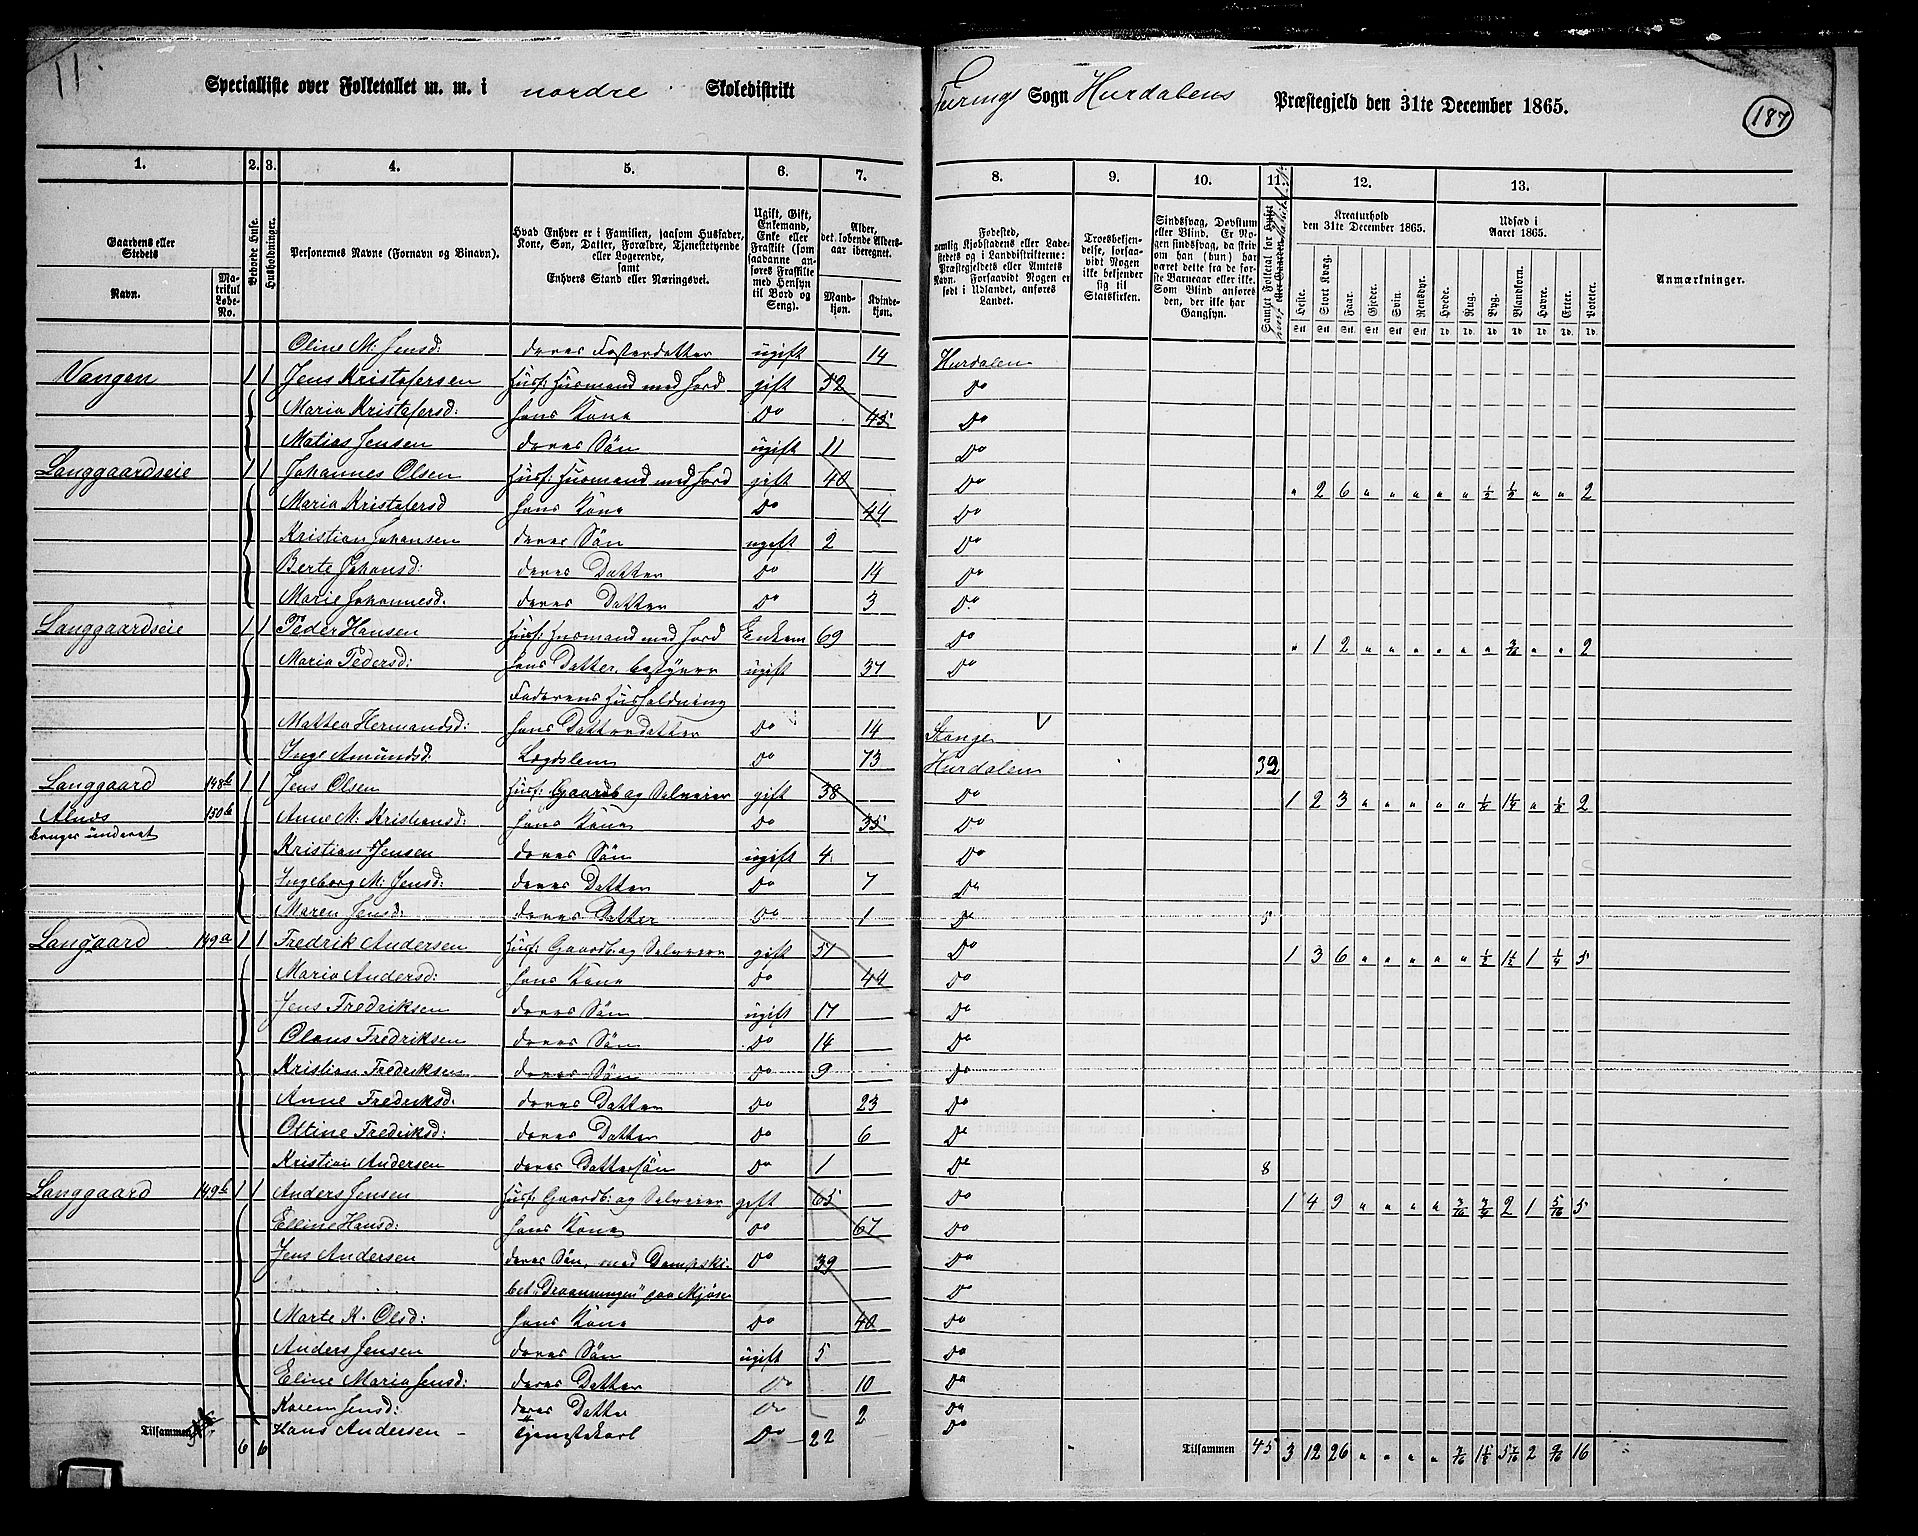 11
Specialliste over Folketallet m. m. i nordre Skoledistrikt
Sogn Hurdalens Præstegjeld den 31te December 1865.
187
1. 2. 3. 4. 5. 6. 7. 8. 9. 10. 11. 12. 13.
Gaardens eller Stedets
Navn.
Matrikul Løbe-No.
Beboede Huse.
Husholdninger.
Personernes Navne (Fornavn og Binavn).
Hvad Enhver er i Familien, saasom Husfader, Kone, Søn, Datter, Forældre, Tjenestetyende eller Logerende, samt Enhvers Stand eller Næringsvei.
Ugift, Gift, Enkemand, Enke eller Fraskilt (saasom saadanne anføres Fraskilte med Hensyn til Bord og Seng).
Alder, det løbende Aldersaar iberegnet.
Mandkjøn. Kvindekjøn.
Fødested, nemlig Kjøbstadens eller Ladestedets og i Landdistrikterne: Præstegjeldets eller Amtets Navn. Forsaavidt Nogen er født i Udlandet, anføres Landet.
Troesbekjendelse, forsaavidt Nogen ikke bekjender sig til Statskirken.
Sindssvag, Døvstum eller Blind. Er Nogen sindssvag, da skriv om han (hun) har været dette fra de første Barneaar eller ikke. Som Blind anføres den, der ikke har Gangsyn.
Kreaturhold den 31te December 1865.
Heste. Stort Kvæg. Faar. Gjeder. Svin. Rensdyr.
Udsæd i Aaret 1865.
Hvede. Rug. Byg. Blandkorn. Havre. Erter. Poteter.
Anmærkninger.
Oline M: Jensd: deres Fosterdatter ugift 14 Hurdalen
Vangen 1 1 Jens Kristofersen Husf: Husmand med Jord gift 52 Do
Maria Kristofersd: hans Kone Do 45 Do
Matias Jensen deres Søn ugift 11 Do
Langgaardseie 1 1 Johannes Olsen Husf: Husmand med Jord gift 40 Do " 2 6 " " " " " 1/2 1/2 " " 2
Maria Kristofersd hans Kone Do 44 Do
Kristian Johansen deres Søn ugift 2 Do
Berte Johansd: deres Datter Do 14 Do
Marie Johannesd. deres Datter Do 3 Do
Langgaardseie 1 1 Peder Hansen Husf: Husmand med Jord Enkem 69 Do " 1 2 " " " " " " " " 2
Maria Pedersd: hans Datter, bestyrer ugift 37 Do
Faderens Husholdning
Mattea Hermandsd: hans Datterdatter Do 14 Stange V
Inge Amundsd: Lægdslem Do 73 Hurdalen 32
Langgaard 148b 1 1 Jens Olsen Husf: Gaardb: og Selveier gift 38 Do 1 2 3 " " " " " 1/2 " 2
Alnæs 150b Anne M: Kristiansd: hans Kone Do 35 Do
bruges underet Kristian Jensen deres Søn ugift 4 Do
Ingeborg M: Jensd: deres Datter Do 7 Do
Maren Jensd: deres Datter Do 1 Do 5
Langaard 149a 1 1 Fredrik Andersen Husf: Gaardb: og Selveier gift 51 Do 1 3 6 " " " " " 1/2 1 1/4 5
Maria Andersd: hans Kone Do 44 Do
Jens Fredriksen deres Søn ugift 17 Do
Olaus Fredriksen deres Søn Do 14 Do
Kristian Fredriksen deres Søn Do 9 Do
Anne Fredriksd. deres Datter Do 23 Do
Oltine Fredriksd: deres Datter Do 6 Do
Kristian Andersen deres Dattersøn Do 1 Do 8
Langgaard 149b 1 1 Anders Jensen Husf: Gaardb: og Selveier gift 65 Do 1 4 9 " " " " 2 1 5
Elline Hansd: hans Kone Do 67 Do
Jens Andersen deres Søn, med Dampski- Do 39 Do
bet "Dronningen" paa Mjøsen Do
Marte K. Olsd: hans Kone Do 40 Do
Anders Jensen deres Søn ugift 5 Do
Eline Maria Jensd: deres Datter Do 10 Do
Karen Jensd: deres Datter Do 2 Do
Hans Andersen - Tjenestekarl Do 22 Do
Tilsammen 6 6
Tilsammen 45 3 12 26 " " " " 2 16